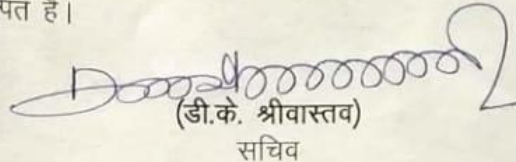 है।
(डी.के. श्रीवास्तव)
सचिव